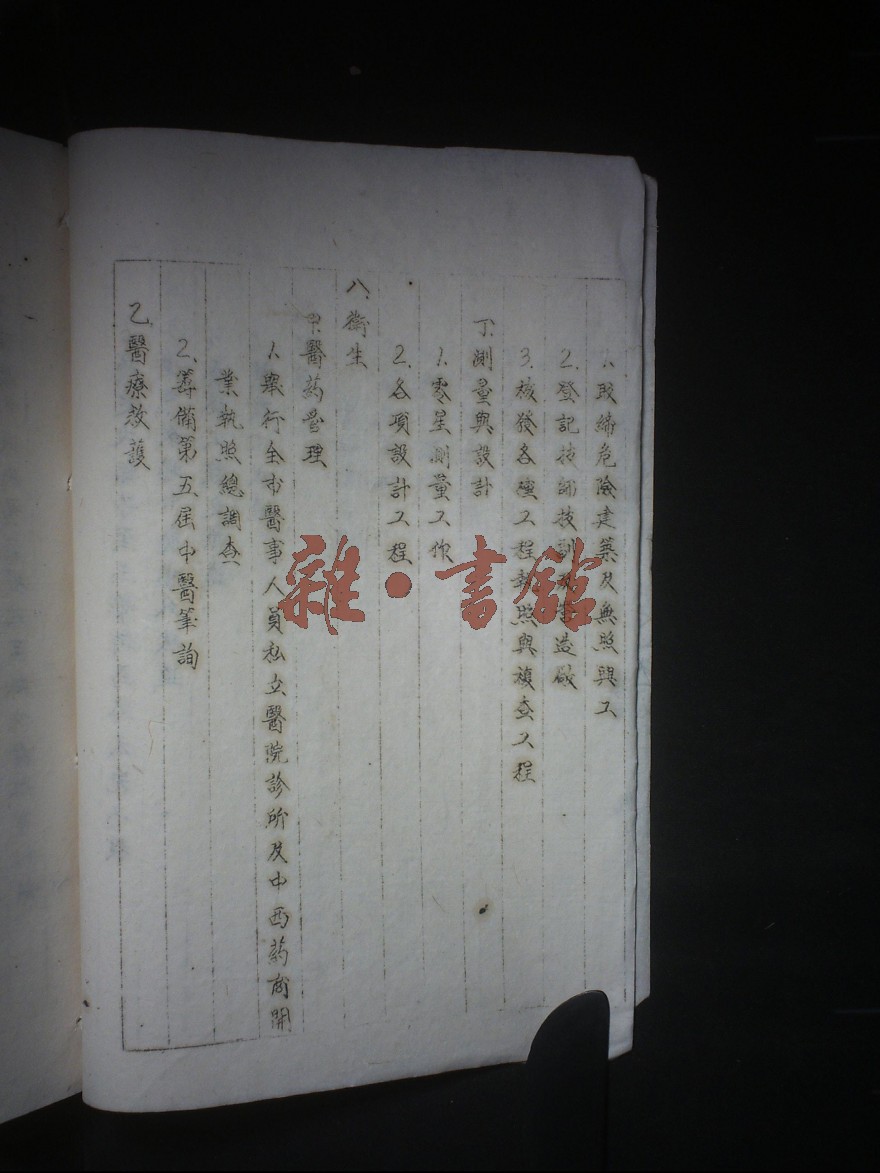 1.取締危險建築及無照興工
2.登記技師技副及營造廠
3.核發各種工程執照與複查工程
丁.測量與設計
1.零星測量工作
2.各項設計工程
八.衛生
甲.醫药管理
1.舉行全市醫事人員私立醫院診所及中西药商開
業執照總調查
2.籌備第五屆中醫筆詢
乙.醫療救護
雜·書館